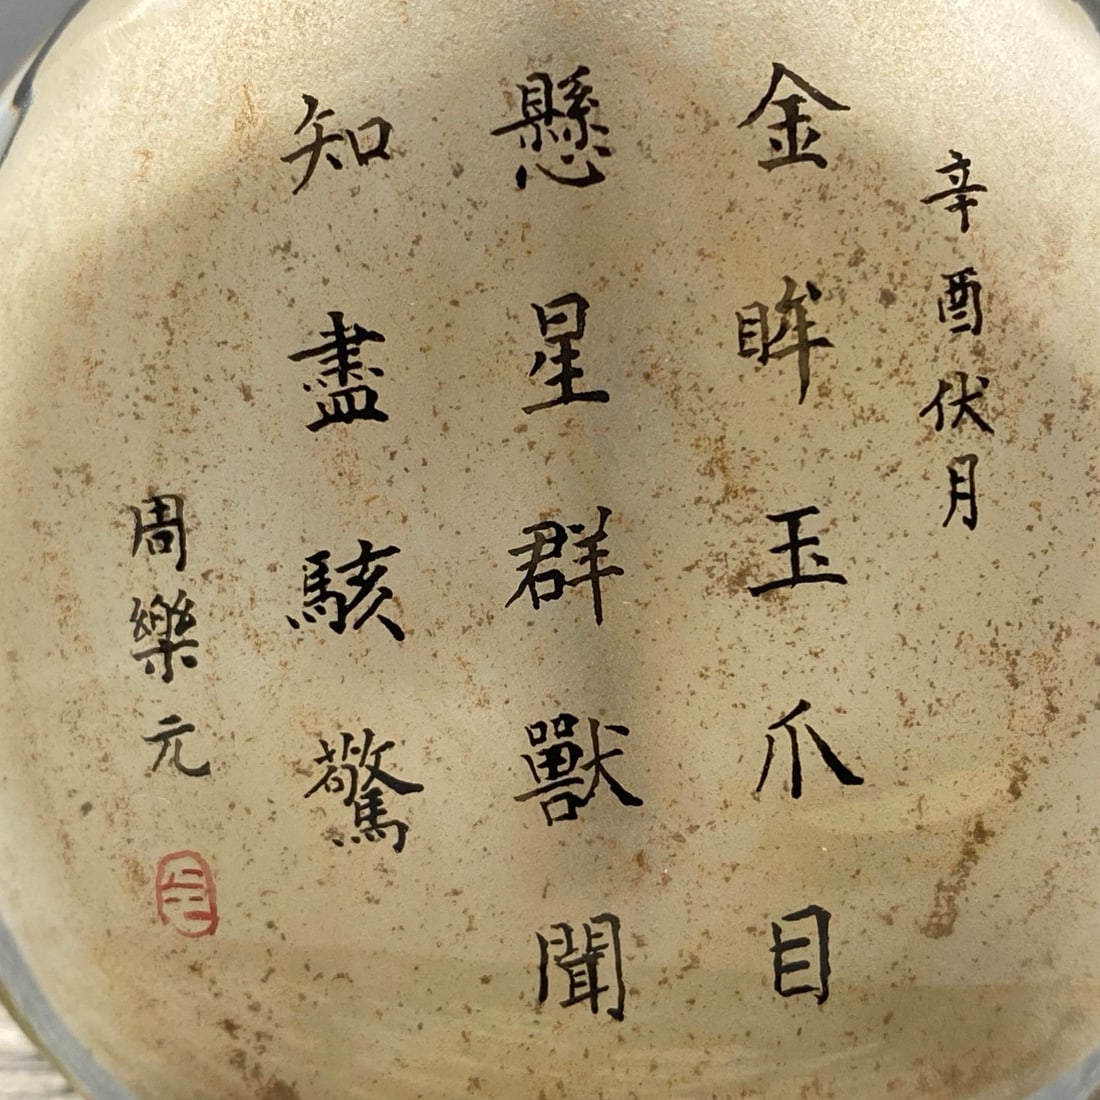 辛酉伏月
金眸玉爪目
懸星群獸聞
知盡駭驚
周樂元